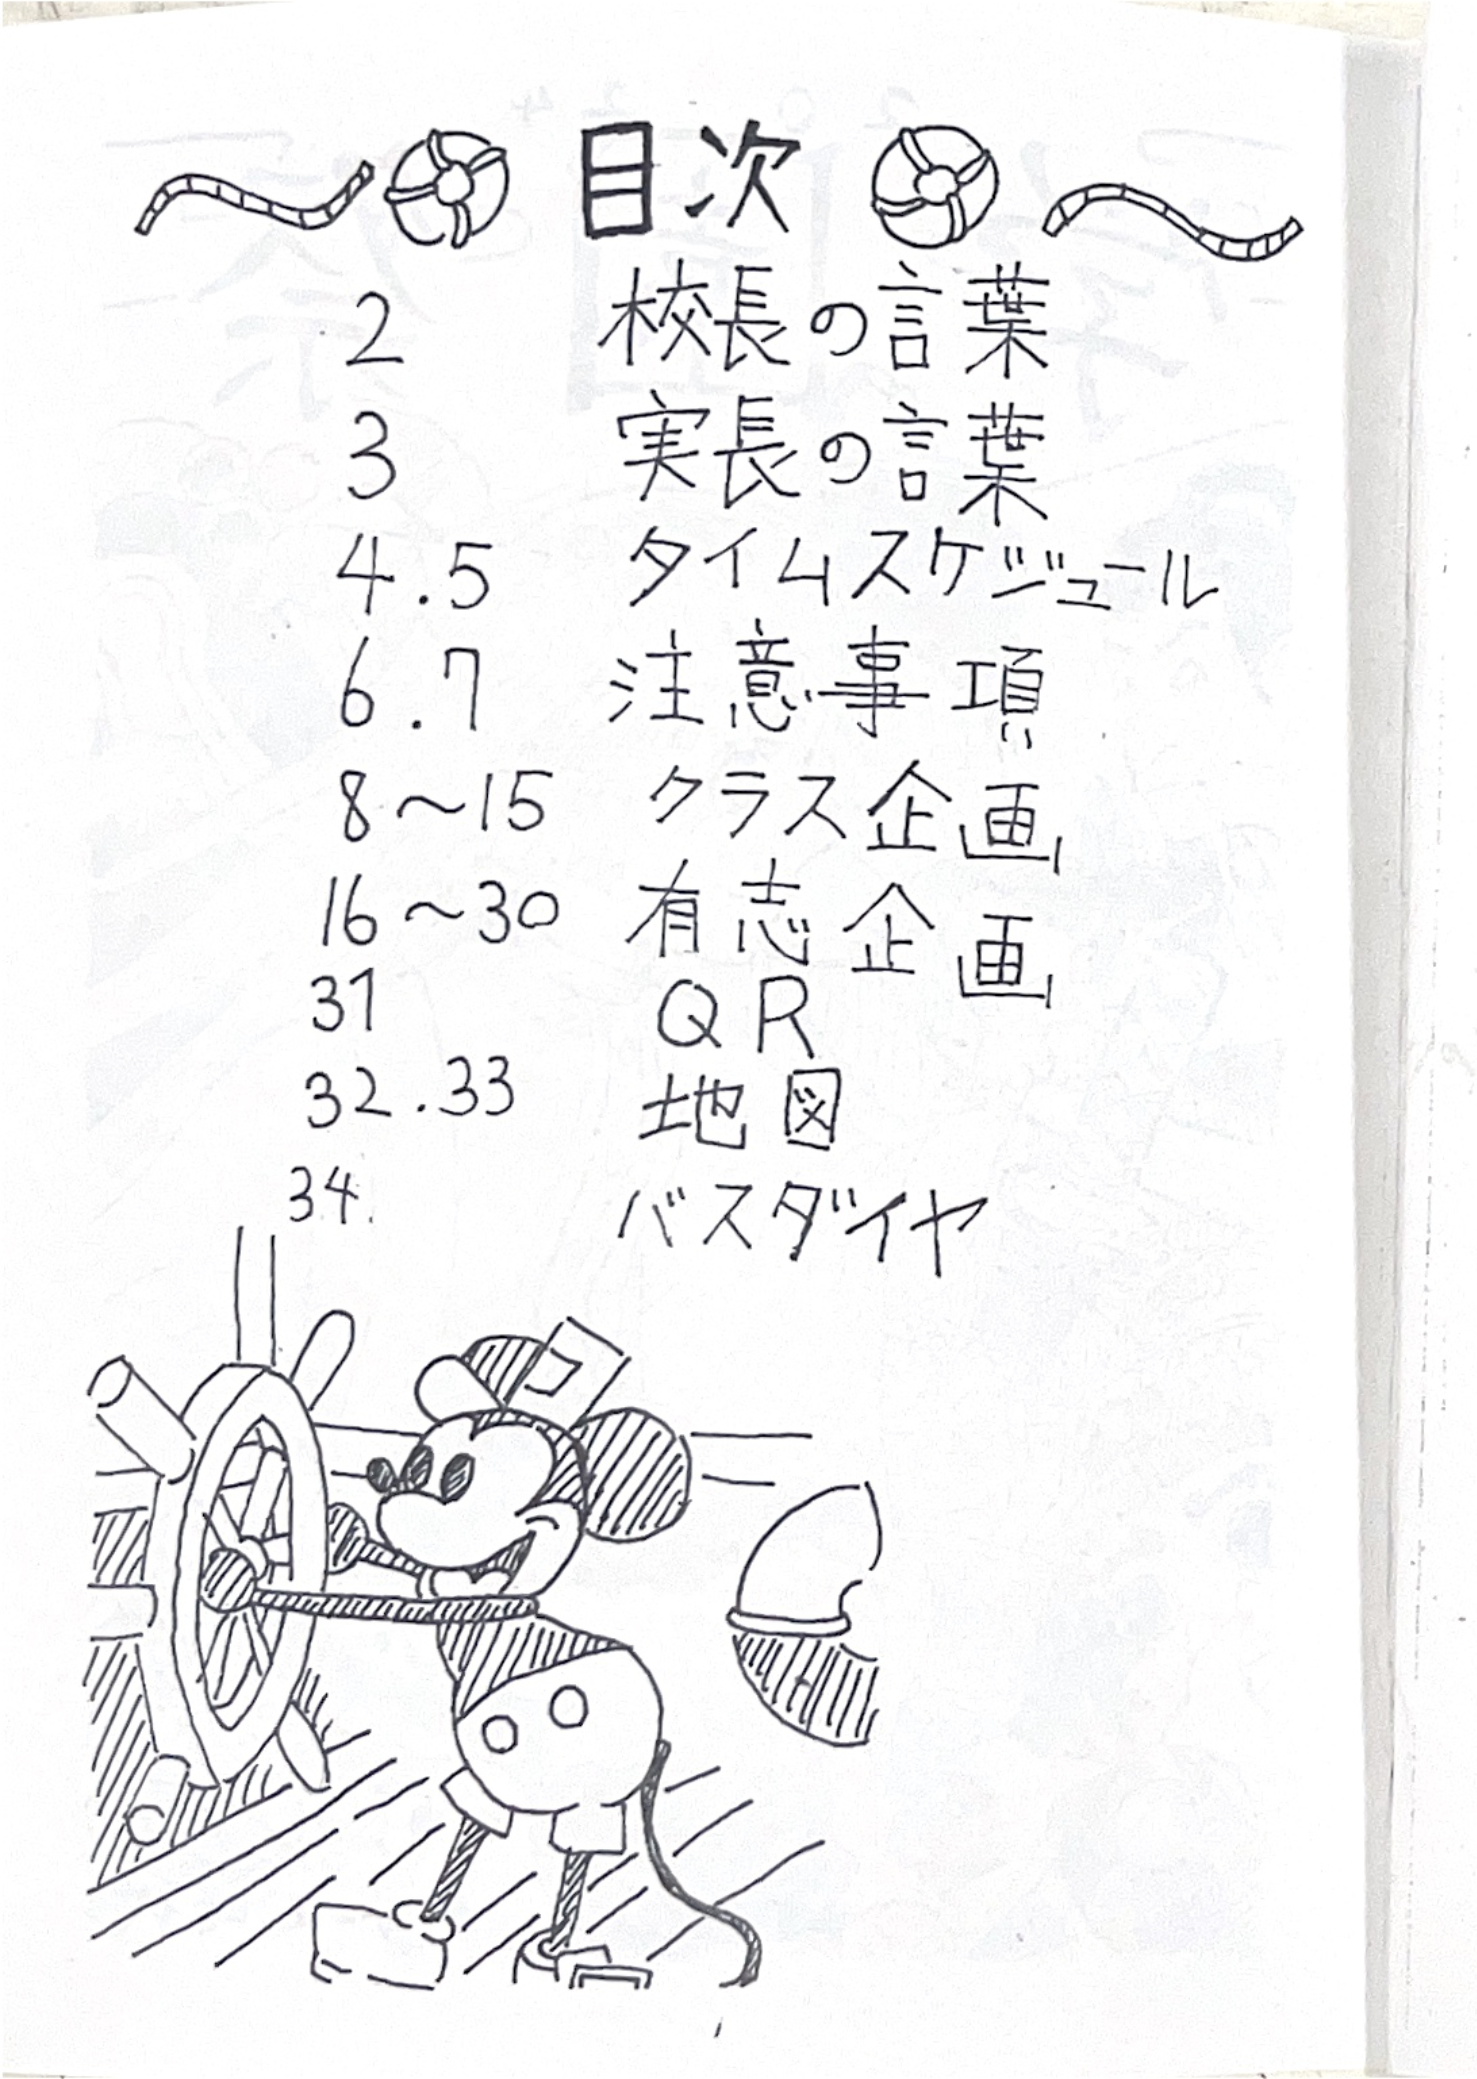 目次
2 校長の言葉
3 実長の言葉
4.5 タイムスケジュール
6.7 注意事項
8～15 クラス企画
16～30 有志企画
31 QR
32.33 地図
34. バスダイヤ